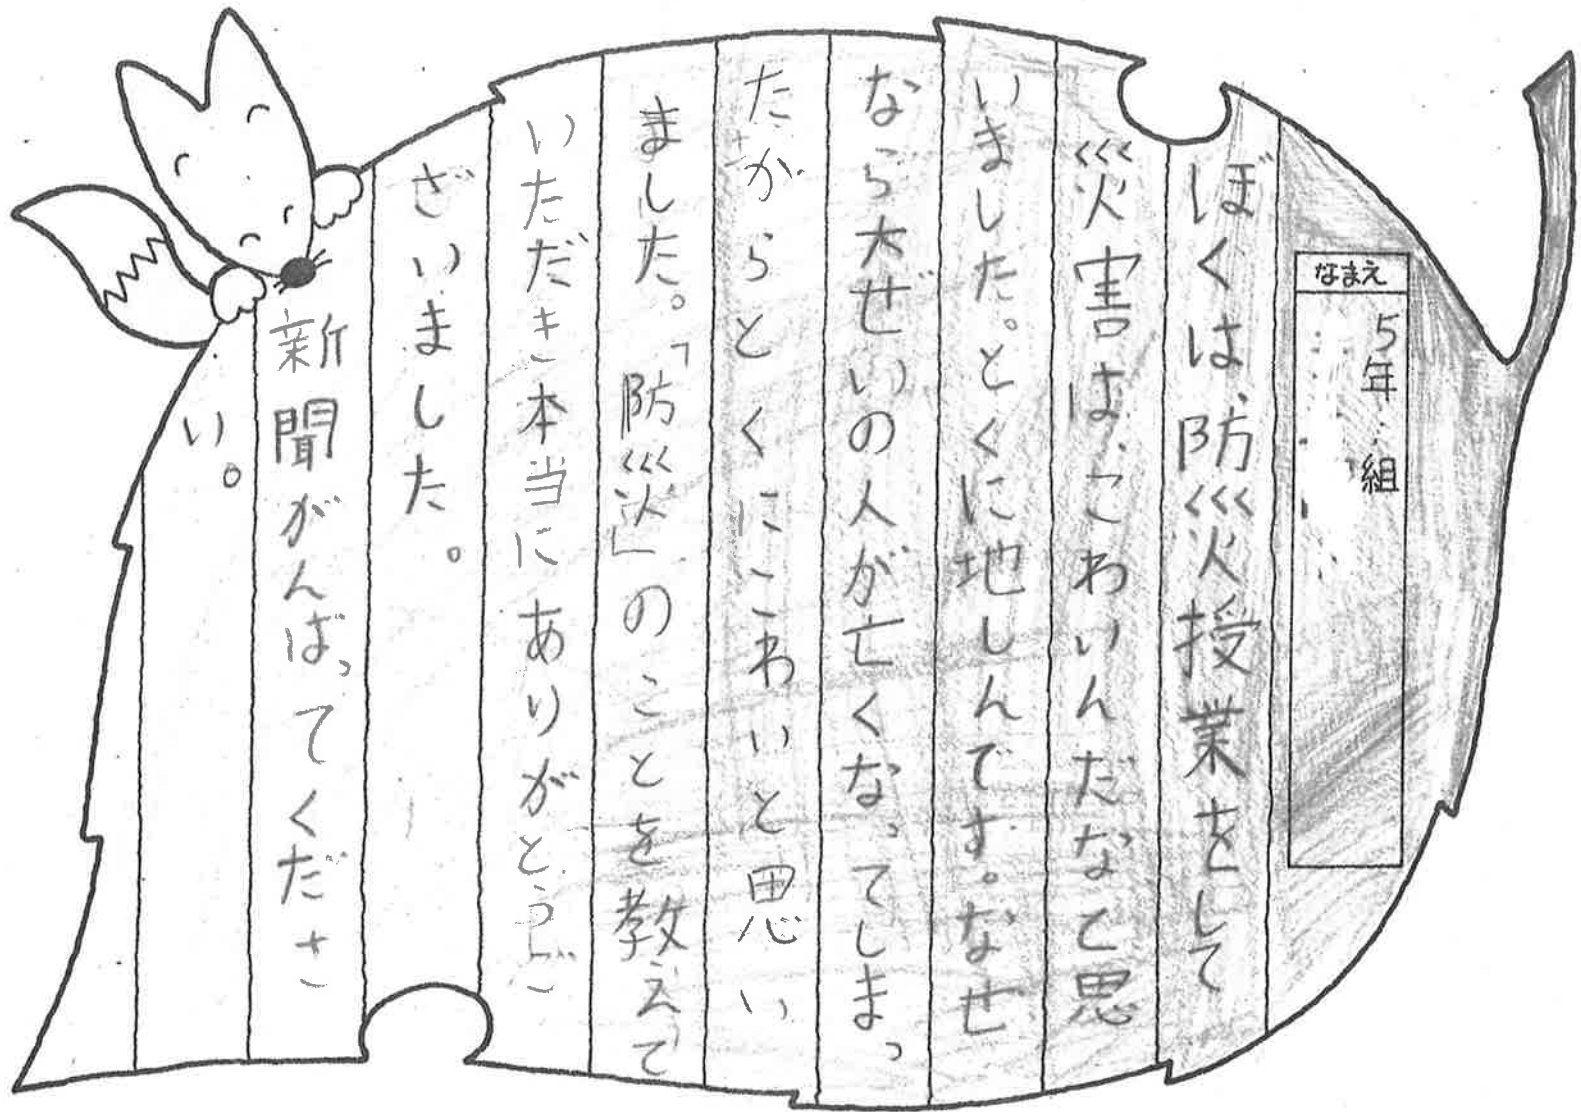 なまえ
5年 組
ぼくは、防災授業をして
災害は、こわいんだなと思
いました。とくに地しんです。なぜ
なら大ぜいの人が亡くなってしまっ
たからとくにこわいと思い
ました。「防災」のことを教えて
いただき本当にありがとうご
ざいました。
新聞がんばってくださ
い。